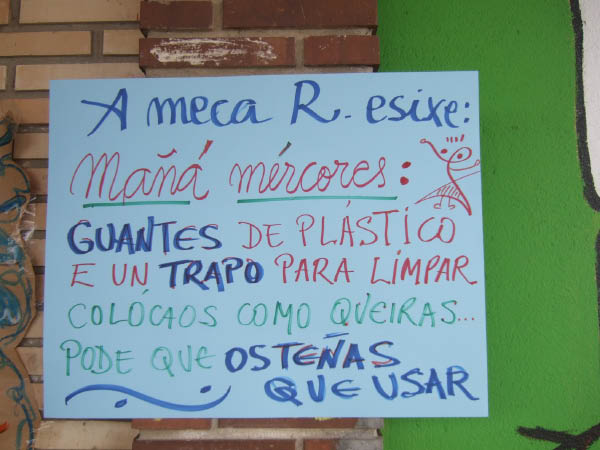 A meca R. esixe:
Mañá mércores:
GUANTES DE PLÁSTICO
E UN TRAPO PARA LIMPAR
COLÓCAOS COMO QUEIRAS...
PODE QUE OS TEÑAS
QUE USAR